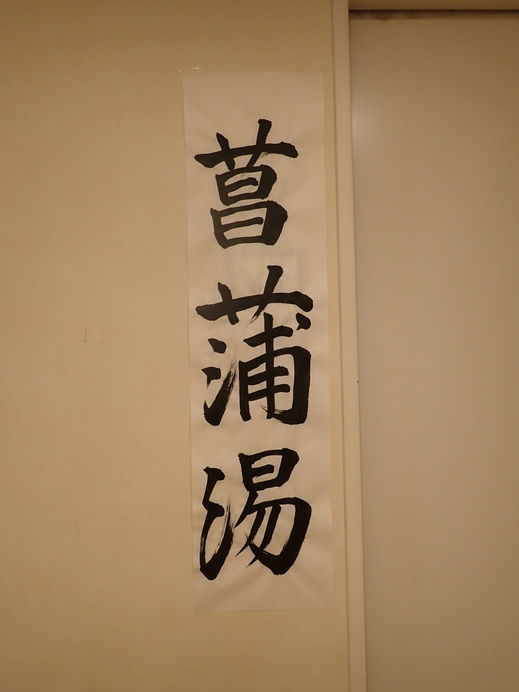 菖蒲湯